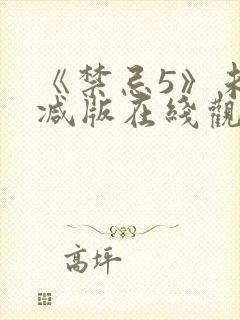 《禁忌5》未
减版在线觀
高坪